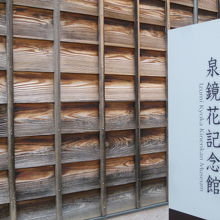 泉鏡花記念館
Izumi Kyoka Kinenkan Museum